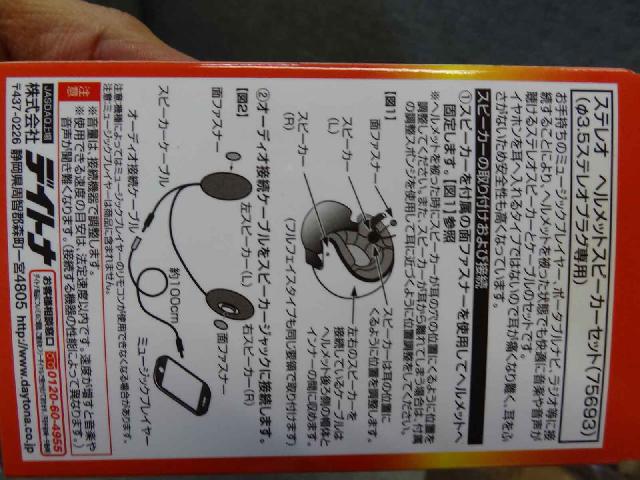 ステレオ ヘルメットスピーカーセット(75693)
(φ3.5ステレオプラグ専用)
お手持ちのミュージックプレイヤー、ポータブルナビ、ラジオ等に接
続することにより、ヘルメットを被った状態でも快適に音楽や音声が
聴けるステレオスピーカーとケーブルのセットです。
イヤホンを耳へ入れるタイプではないので耳が痛くなり難く、耳をふ
さがないため安全性も高くなっています。
スピーカーの取り付けおよび接続
①スピーカーを付属の面ファスナーを使用してヘルメットへ
固定します。【図1】参照
※ヘルメットを被った時にスピーカーが耳の穴の位置にくるように位置を
調整してください。また、スピーカーが耳から離れてしまう場合は、付属
の調整スポンジを使用して耳に近づくように位置調整をしてください。
【図1】
面ファスナー
スピーカー
(L)
スピーカー
(R)
スピーカーは耳の位置に
くるように位置を調整します。
左右のスピーカーを
接続しているケーブルは
ヘルメット後ろ側の帽体と
インナーの間に収めます。
(フルフェイスタイプも同じ要領で取り付けます)
②オーディオ接続ケーブルをスピーカージャックに接続します。
【図2】
面ファスナー
左スピーカー(L)
右スピーカー(R)
面ファスナー
スピーカーケーブル
オーディオ接続ケーブル
約100cm
ミュージックプレイヤー
注意:機種によってはミュージックプレイヤーのリモコンが使用できなくなる場合があります。
注意:ミュージックプレイヤーは商品に含まれません。
注意
※音量は、接続機器で調整します。
※使用できる速度の目安は、法定速度以内です。速度が増すと音楽や
音声が聞き難くなります。(接続する機器の性能によって異なります。)
JASDAQ上場
株式会社 デイトナ
お客様相談窓口
0120-60-4955
〒437-0226 静岡県周智郡森町一宮4805 http://www.daytona.co.jp